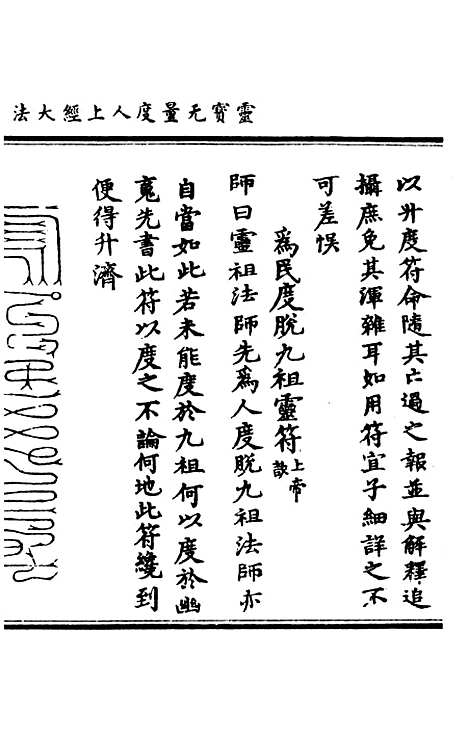 靈寳无量度人上經大法
以升度符命隨其亡過之報並與解釋追
攝庶免其渾雜耳如用符宜子細詳之不
可差悮
爲民度脫九祖靈符上帝敕
師曰靈祖法師先爲人度脫九祖法師亦
自當如此若未能度於九祖何以度於幽
䰟先書此符以度之不論何地此符纔到
便得升濟